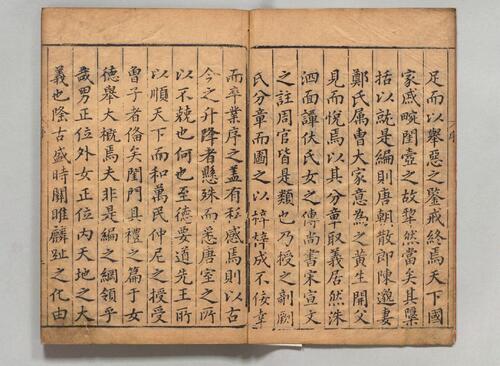 序
足而以舉惡之鑒戒終焉天下國
家戚畹閨壼之故犂然當矣其檃
括以就是編則唐朝散郎陳邈妻
鄭氏属曹大家意為之黄生開父
見而悅焉以其分章取義居然洙
泗而譚伏氏女之傳尚書宋宣文
之註周官皆是類也乃授之剞劂
氏分章而圖之以梓梓成不佞幸
而卒業序之盖有私感焉則以古
今之升降者懸殊而悉唐室之所
以不兢也何也至德要道先王所
以順天下而和萬民仲尼之授受
曾子者偹矣閨門具禮之篇于女
德舉大概焉夫非是編之綱領乎
歲男正位外女正位内天地之大
義也隆古盛時關雎麟趾之化由